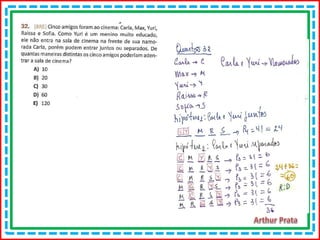 32. (IBFC) Cinco amigos foram ao cinema: Carla, Max, Yuri,
Raissa e Sofia. Como Yuri é um menino muito educado,
ele não entra na sala de cinema na frente de sua namo-
rada Carla, porém podem entrar juntos ou separados. De
quantas maneiras distintas os cinco amigos poderiam aden-
trar a sala de cinema?
A) 10
B) 20
C) 30
D) 60
E) 120
Questão 32
Carla → C
Carla e Yuri → Namorados
Max → M
Yuri → Y
Raissa → R
Sofia → S
hipótese1: Carla e Yuri juntos
CY M R S → P4 = 4! = 24
hipótese2: Carla e Yuri separados
C M Y R S → P3 = 3! = 6
C M R Y S → P3 = 3! = 6
24+36=
C M R S Y → P3 = 3! = 6
=60
→ P3 = 3! = 6
R:D
→ P3 = 3! = 6
→ P3 = 3! = 6
36
Arthur Prata